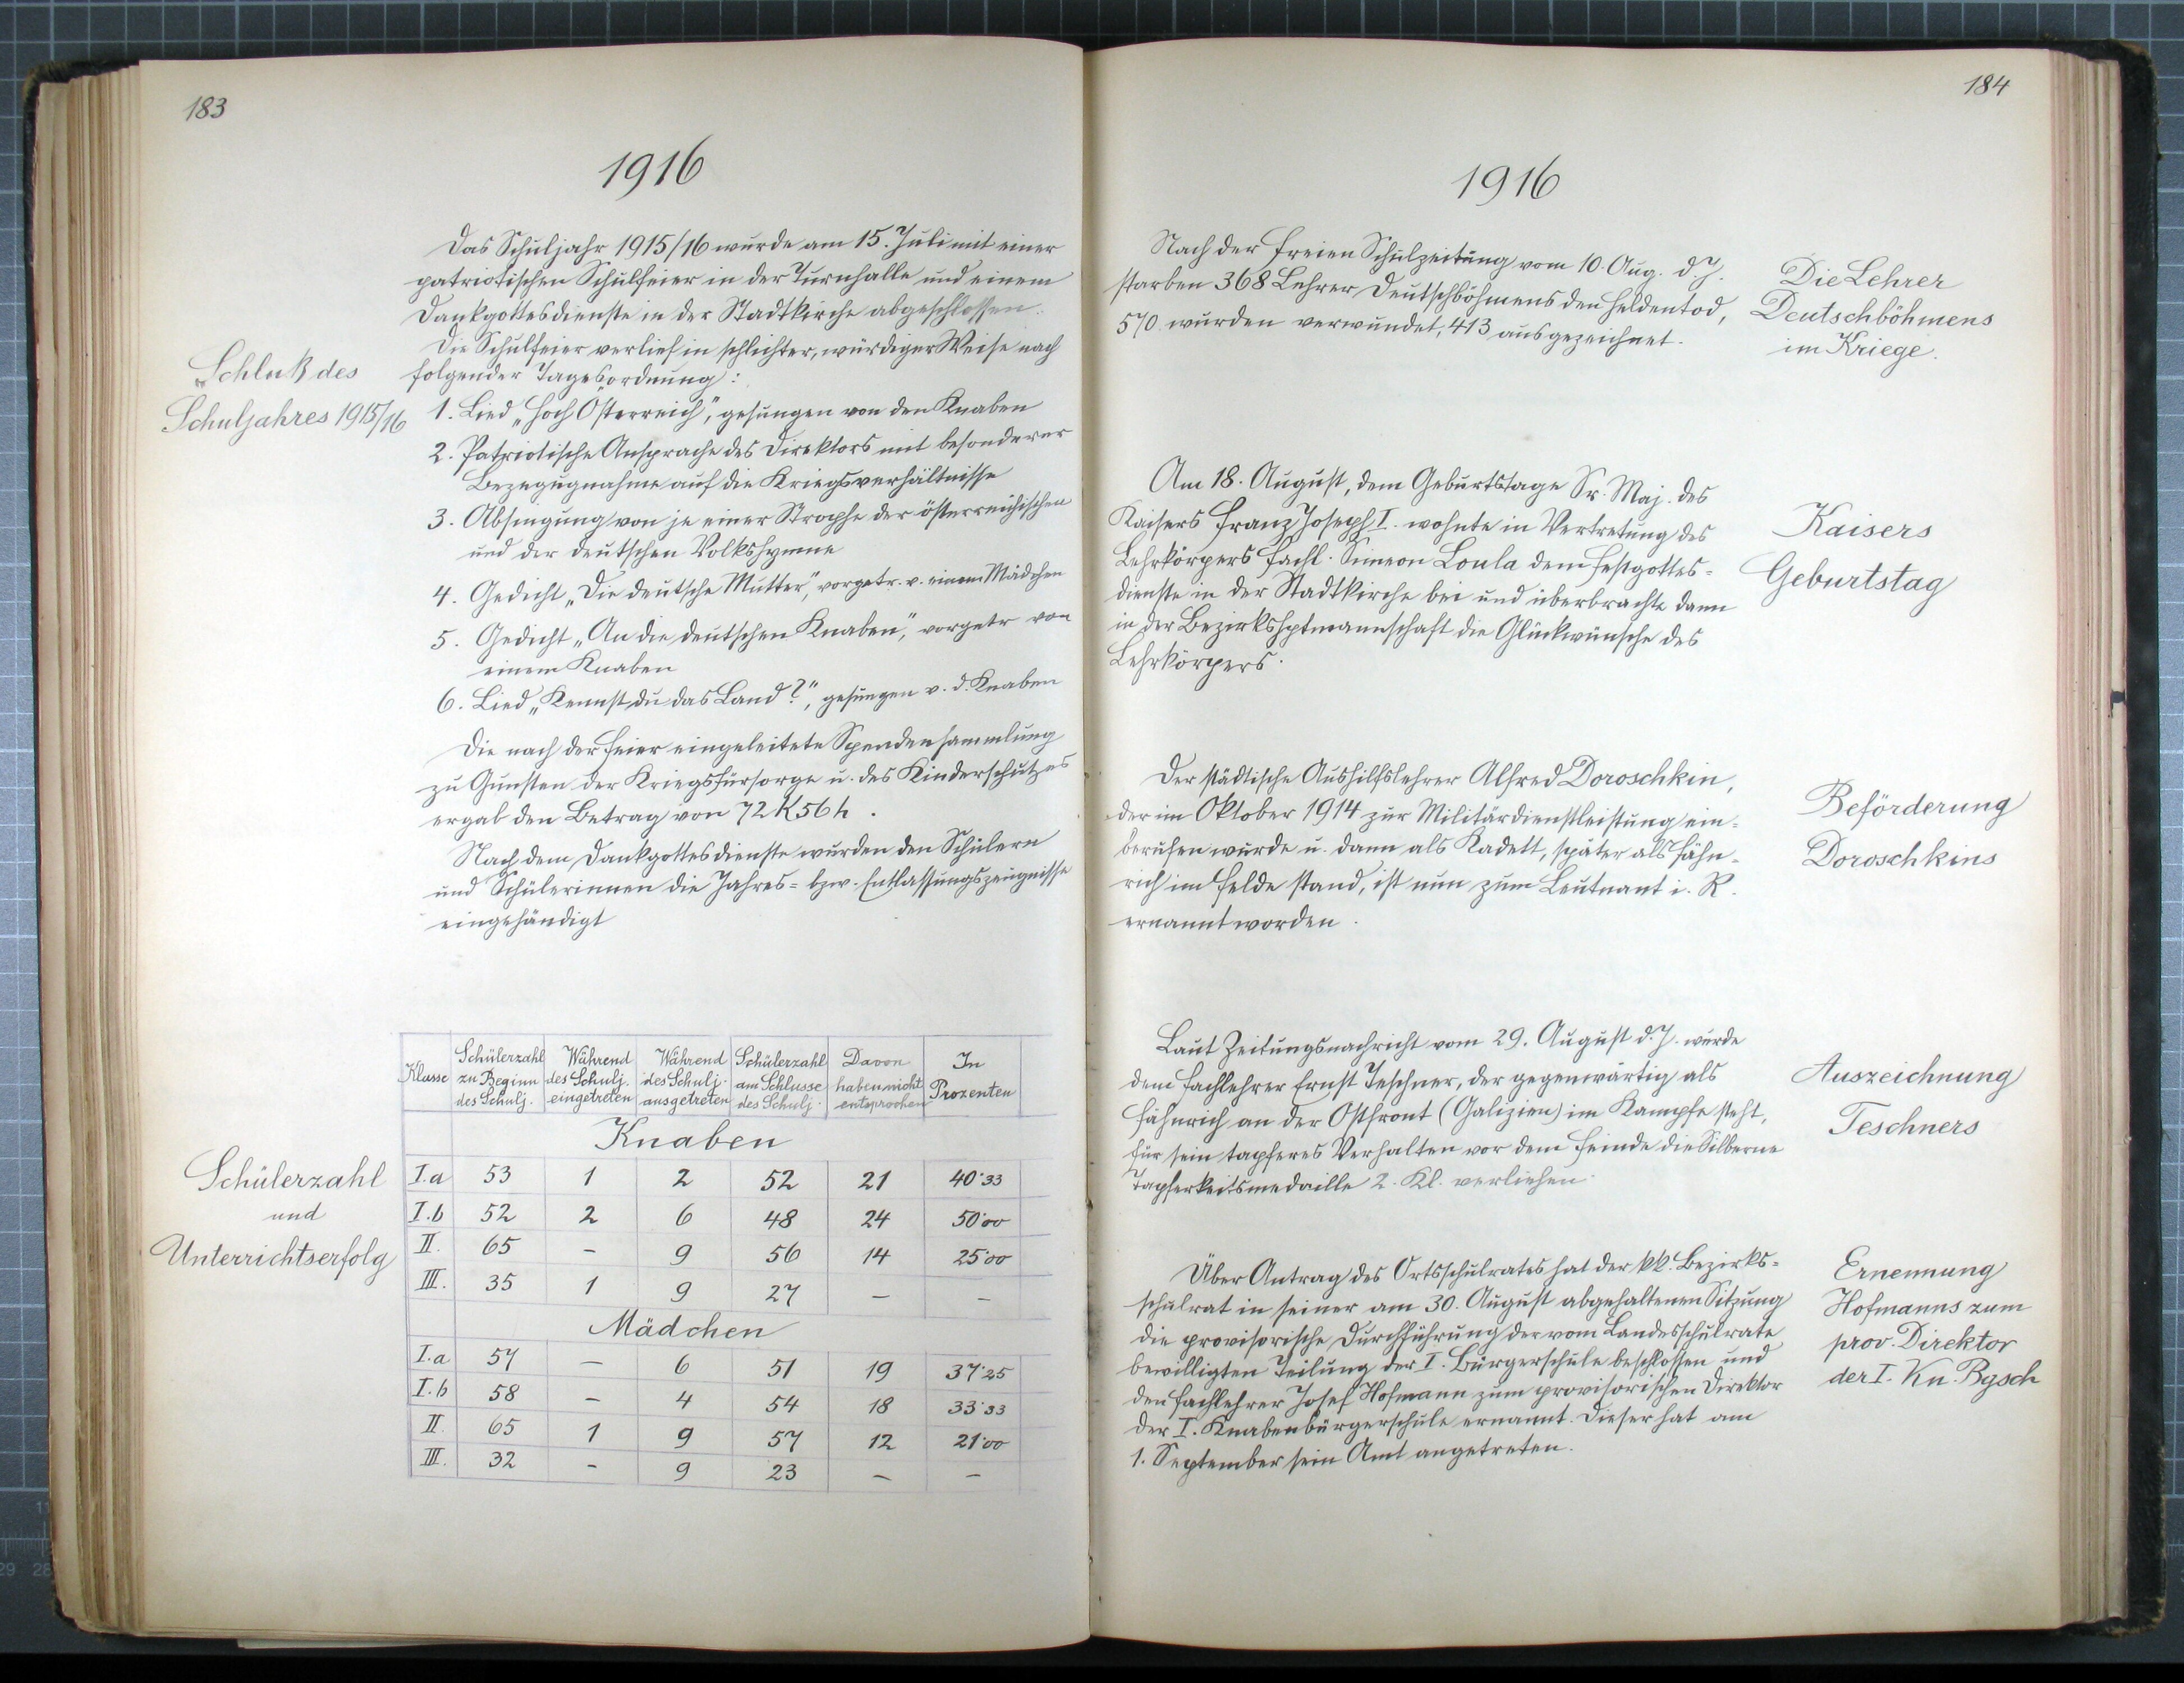 183
1916
Schluß des
Schuljahres 1915/16
Das Schuljahr 1915/16 wurde am 15. Juli mit einer
patriotischen Schulfeier in der Turnhalle und einem
Dankgottesdienste in der Stadtkirche abgeschlossen.
Die Schulfeier verlief in schlichter, würdiger Weise nach
folgender Tagesordnung:
1. Lied „Hoch Österreich“, gesungen von den Knaben
2. Patriotische Ansprache des Direktors mit besonderer
Bezugugnahme auf die Kriegsverhältnisse
3. Absingung von je einer Strophe der österreichischen
und der deutschen Volkshymne
4. Gedicht „Die deutsche Mutter“, vorgetr. v. einem Mädchen
5. Gedicht „An die deutschen Knaben“, vorgetr von
einem Knaben
6. Lied „Kennst du das Land?“, gesungen v. d. Knaben
Die nach der Feier eingeleitete Spendensammlung
zu Gunsten der Kriegsfürsorge u. des Kinderschutzes
ergab den Betrag von 72 K 56 h.
Nach dem Dankgottesdienste wurden den Schülern
und Schülerinnen die Jahres= bzw. Entlassungszeugnisse
eingehändigt
Schülerzahl
und
Unterrichtserfolg
Klasse | Schülerzahl zu Beginn des Schulj. | Während des Schulj. eingetreten | Während des Schulj. ausgetreten | Schülerzahl am Schlusse des Schulj. | Davon haben nicht entsprochen | In Prozenten
Knaben
I.a 53 1 2 52 21 40·33
I.b 52 2 6 48 24 50·00
II. 65 – 9 56 14 25·00
III. 35 1 9 27 – –
Mädchen
I.a 57 – 6 51 19 37·25
I.b 58 – 4 54 18 33·33
II. 65 1 9 57 12 21·00
III. 32 – 9 23 – –
184
1916
Nach der Freien Schulzeitung vom 10. Aug. d. J.
starben 368 Lehrer Deutschböhmens den Heldentod,
570 wurden verwundet, 413 ausgezeichnet.
Die Lehrer
Deutschböhmens
im Kriege.
Am 18. August, dem Geburtstage Sr. Maj. des
Kaisers Franz Joseph I. wohnte in Vertretung des
Lehrkörpers Fachl. Simeon Loula dem Festgottes=
dienste in der Stadtkirche bei und überbrachte dann
in der Bezirkshptmannschaft die Glückwünsche des
Lehrkörpers.
Kaisers
Geburtstag
Der städtische Aushilfslehrer Alfred Doroschkin,
der im Oktober 1914 zur Militärdienstleistung ein=
berufen wurde u. dann als Kadett, später als Fähn=
rich im Felde stand, ist nun zum Leutnant i. R.
ernannt worden.
Beförderung
Doroschkins
Laut Zeitungsnachricht vom 29. August d. J. wurde
dem Fachlehrer Ernst Teschner, der gegenwärtig als
Fähnrich an der Ostfront (Galizien) im Kampfe steht,
für sein tapferes Verhalten vor dem Feinde die Silberne
Tapferkeitsmedaille 2. Kl. verliehen.
Auszeichnung
Teschners
Über Antrag des Ortsschulrates hat der kk. Bezirks=
schulrat in seiner am 30. August abgehaltenen Sitzung
die provisorische Durchführung der vom Landesschulrate
bewilligten Teilung der I. Bürgerschule beschlossen und
den Fachlehrer Josef Hofmann zum provisorischen Direktor
der I. Knabenbürgerschule ernannt. Dieser hat am
1. September sein Amt angetreten.
Ernennung
Hofmanns zum
prov. Direktor
der I. Kn. Bgsch